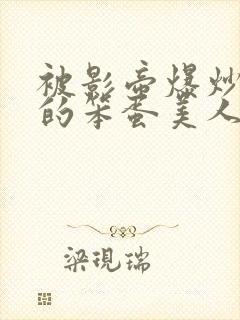 被影帝爆炒
的笨蛋美人
梁現瑞